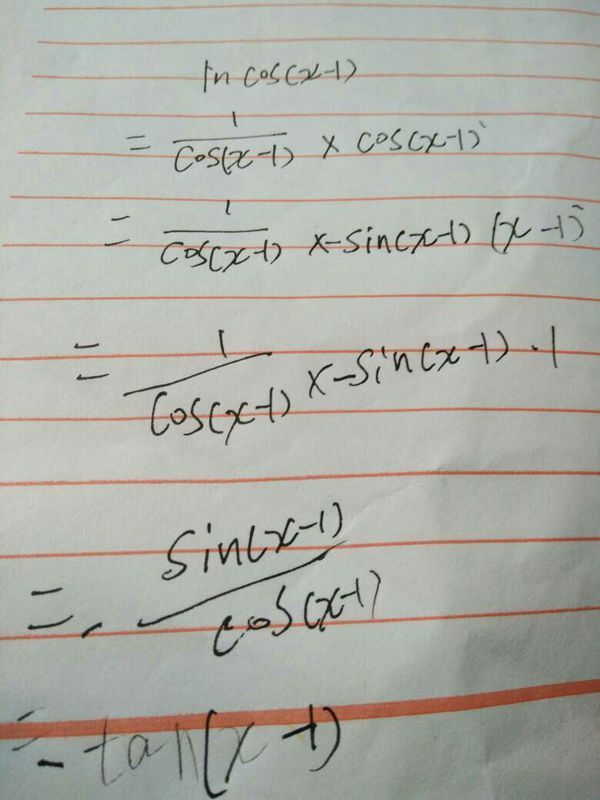 ln cos(x-1)
= 1/cos(x-1) × cos(x-1)'
= 1/cos(x-1) ×-sin(x-1) (x-1)'
= 1/cos(x-1) ×-sin(x-1)·1
= - sin(x-1)/cos(x-1)
= -tan(x-1)